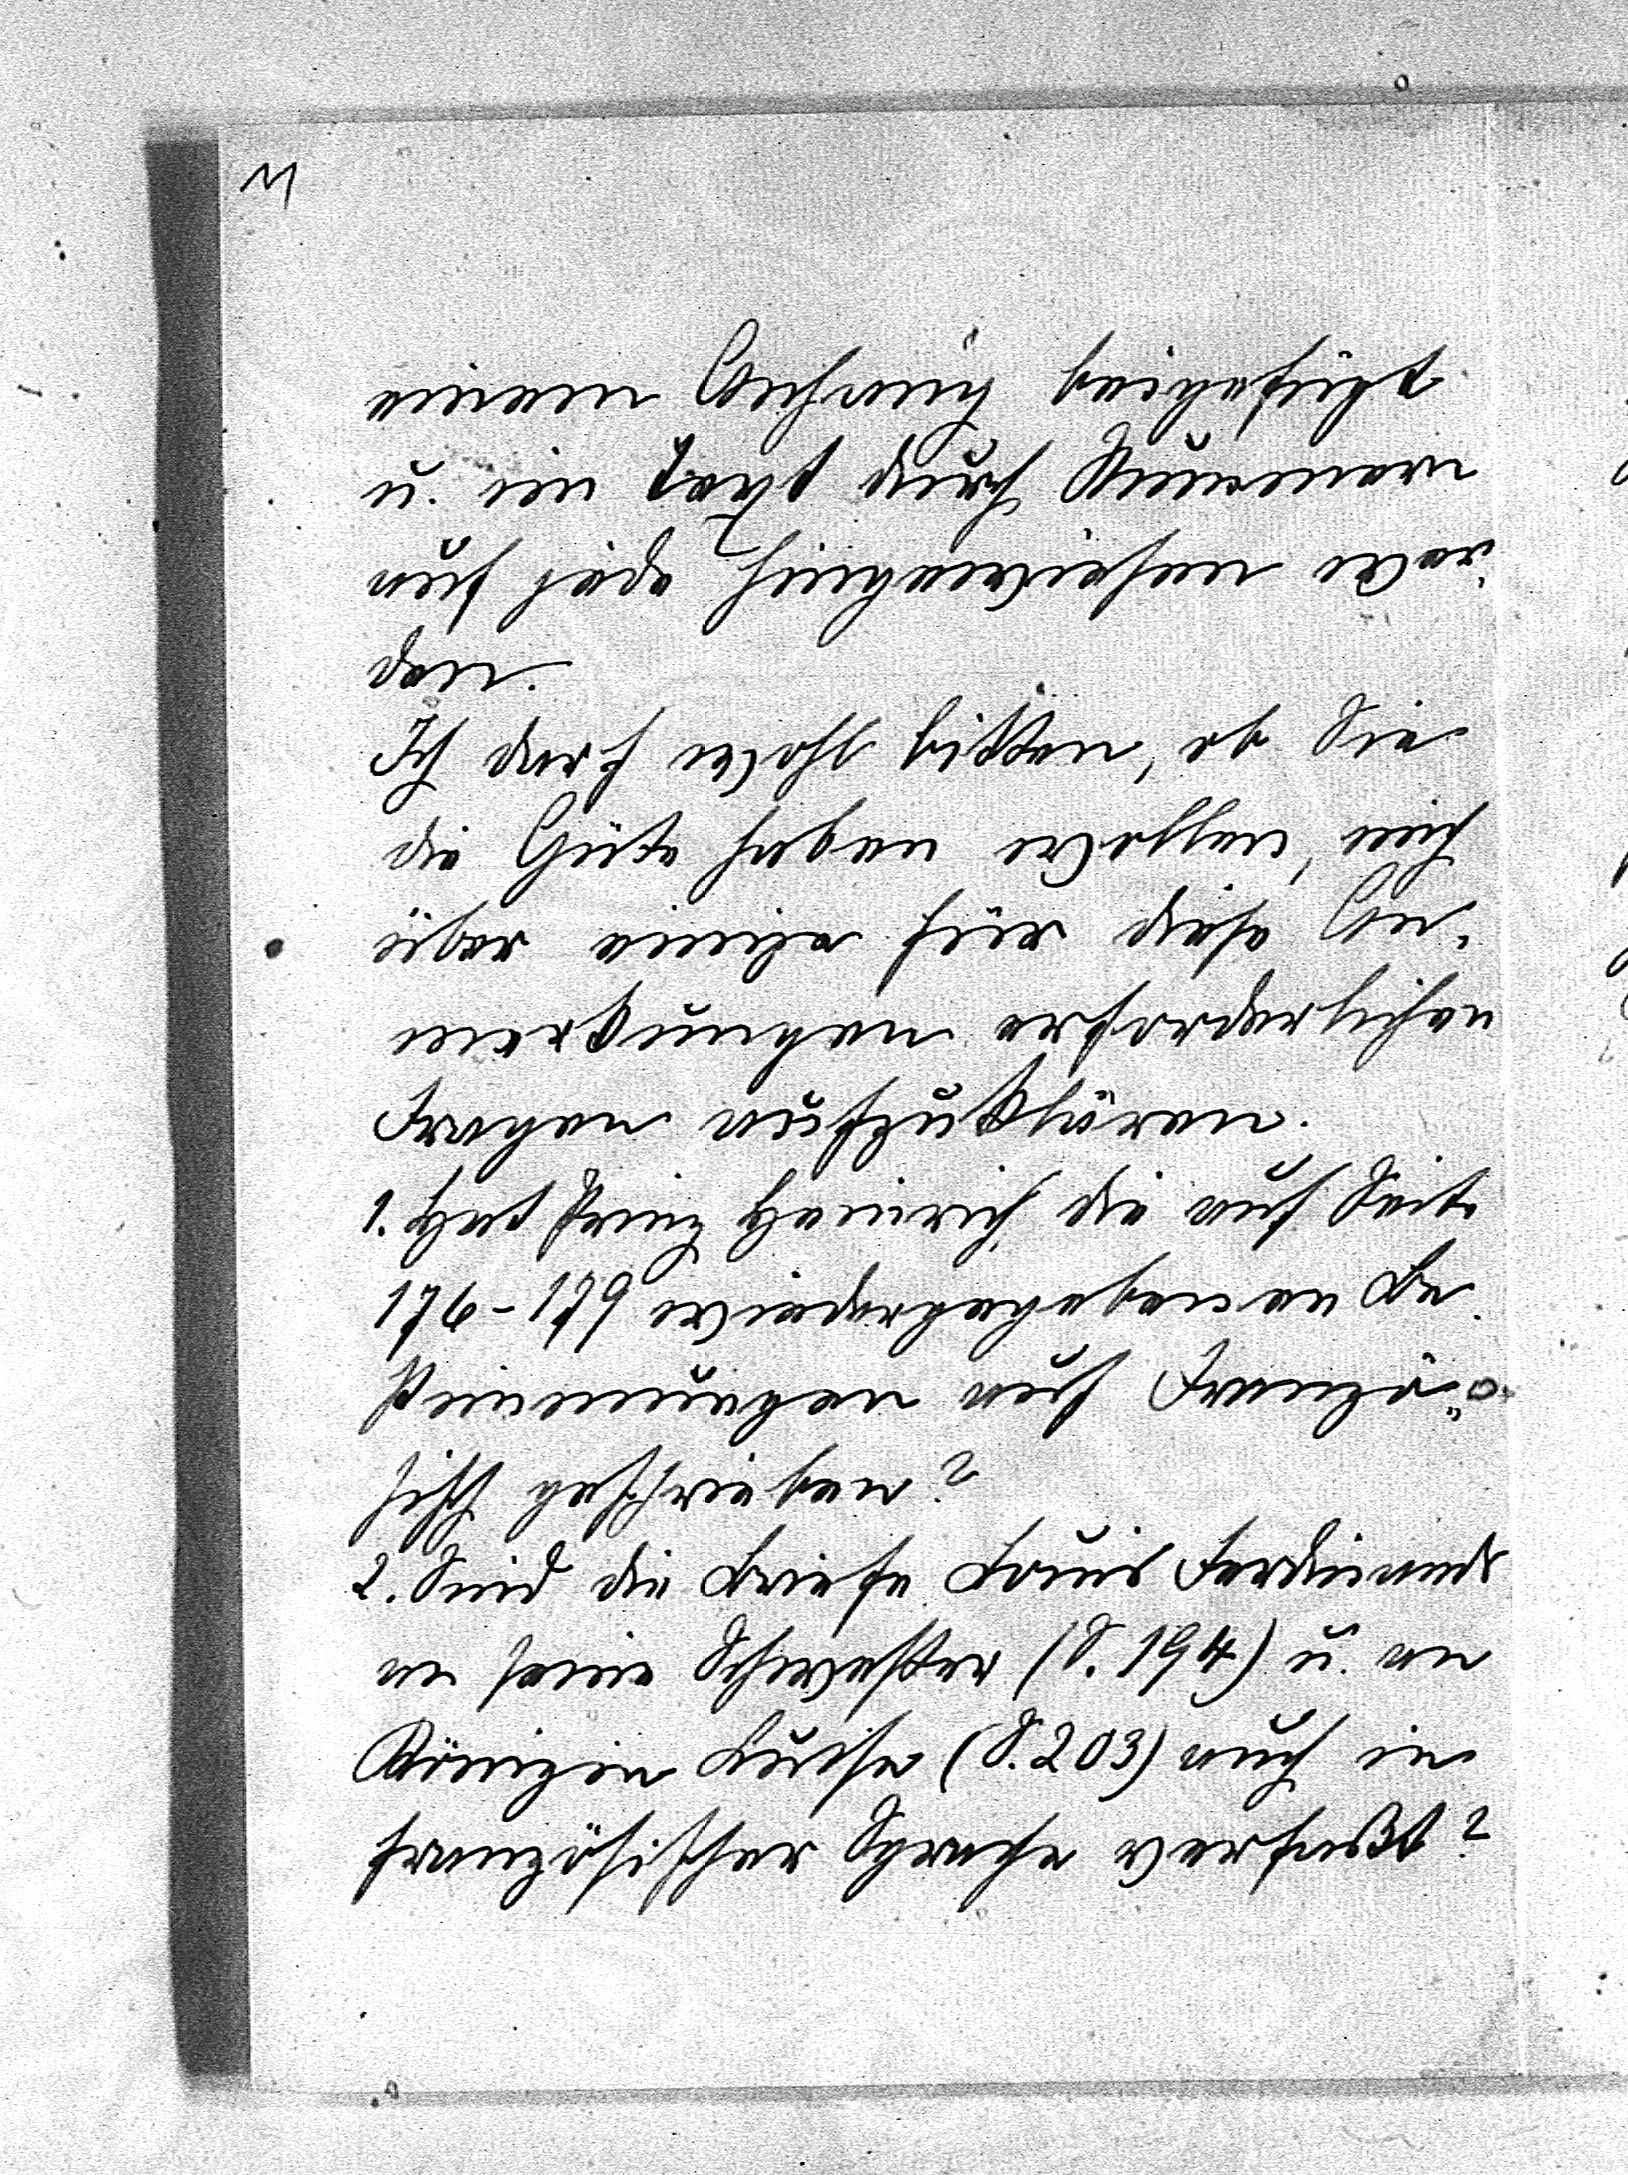 einem Anhang beigefügt
u. im Text durch Nummern
auf jede hingewiesen wer-
den.
Ich darf wohl bitten, ob Sie
die Güte haben wollen, mich
über einige für diese An-
merkungen erforderlichen
Fragen aufzuklären.
1. Hat Prinz Heinrich die auf Seite
176-179 wiedergegebenen Be-
stimmungen auf Franzö-
sisch geschrieben?
2. Sind die Briefe Louis Ferdinands
an seine Schwester (S. 194) u. an
Königin Luise (S. 203) auch in
französischer Sprache verfaßt?